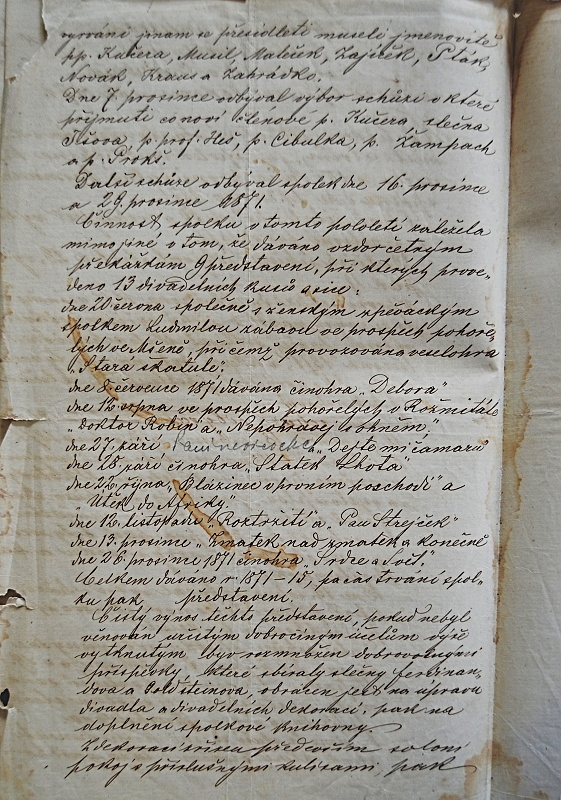 jinam se přesídleti museli jmenovitě
pp. Kučera, Musil, Maleček, Zajíček, Pták,
Novák, Kraus a Zahrádko.
Dne 7. prosince odbýval výbor schůzi v které
přijmuti co noví členové p. Kučera, slečna
Tišova, p. prof. Heš, p. Cibulka, p. Žampach
a p. Prokš.
Další schůze odbýval spolek dne 16. prosince
a 29. prosince 1871.
Činnost spolku v tomto pololetí záležela
mimo jiné v tom, že dáváno vzdor četným
překážkám 9 představení, při kterých prove-
deno 13 divadelních kusů a sice:
dne 20 června společně s ženským zpěváckým
spolkem Ludmilou zábava ve prospěch pohoře-
lých ve Mšeně při čemž provozována veselohra
„Stará skatule“;
dne 8. července 1871 dávána činohra „Debora“
dne 12. srpna ve prospěch pohořelých v Rožmitále
„Doktor Robin“ a „Nepohrávej s ohněm.“
dne 27. září a „Dejte mi čamaru“
dne 28. září činohra „Statek Lhota“
dne 22. října „Blázinec v prvním poschodí“ a
„Útěk do Afriky“
dne 12. listopadu „Roztržití“ a „Pan Strejček“
dne 13. prosince „Zmatek nad zmatek a konečně
dne 26. prosince 1871 činohra „Srdce a Svět“.
Celkem dáváno r. 1871 – 15, za čas trvání spol-
ku pak představení.
Čistý výnos těchto představení, pokud nebyl
věnován určitým dobročiným účelům výše
vytknutým byv rozmnožen dobrovolnými
příspěvky, které sbíraly slečny Ferdinan-
dova a Goldsteinova, obrácen jest na úpravu
divadla a divadelních dekorací, pak na
doplnění spolkové knihovny.
Z dekorací především salonní
pokoj s příslušnými kulisami, pak